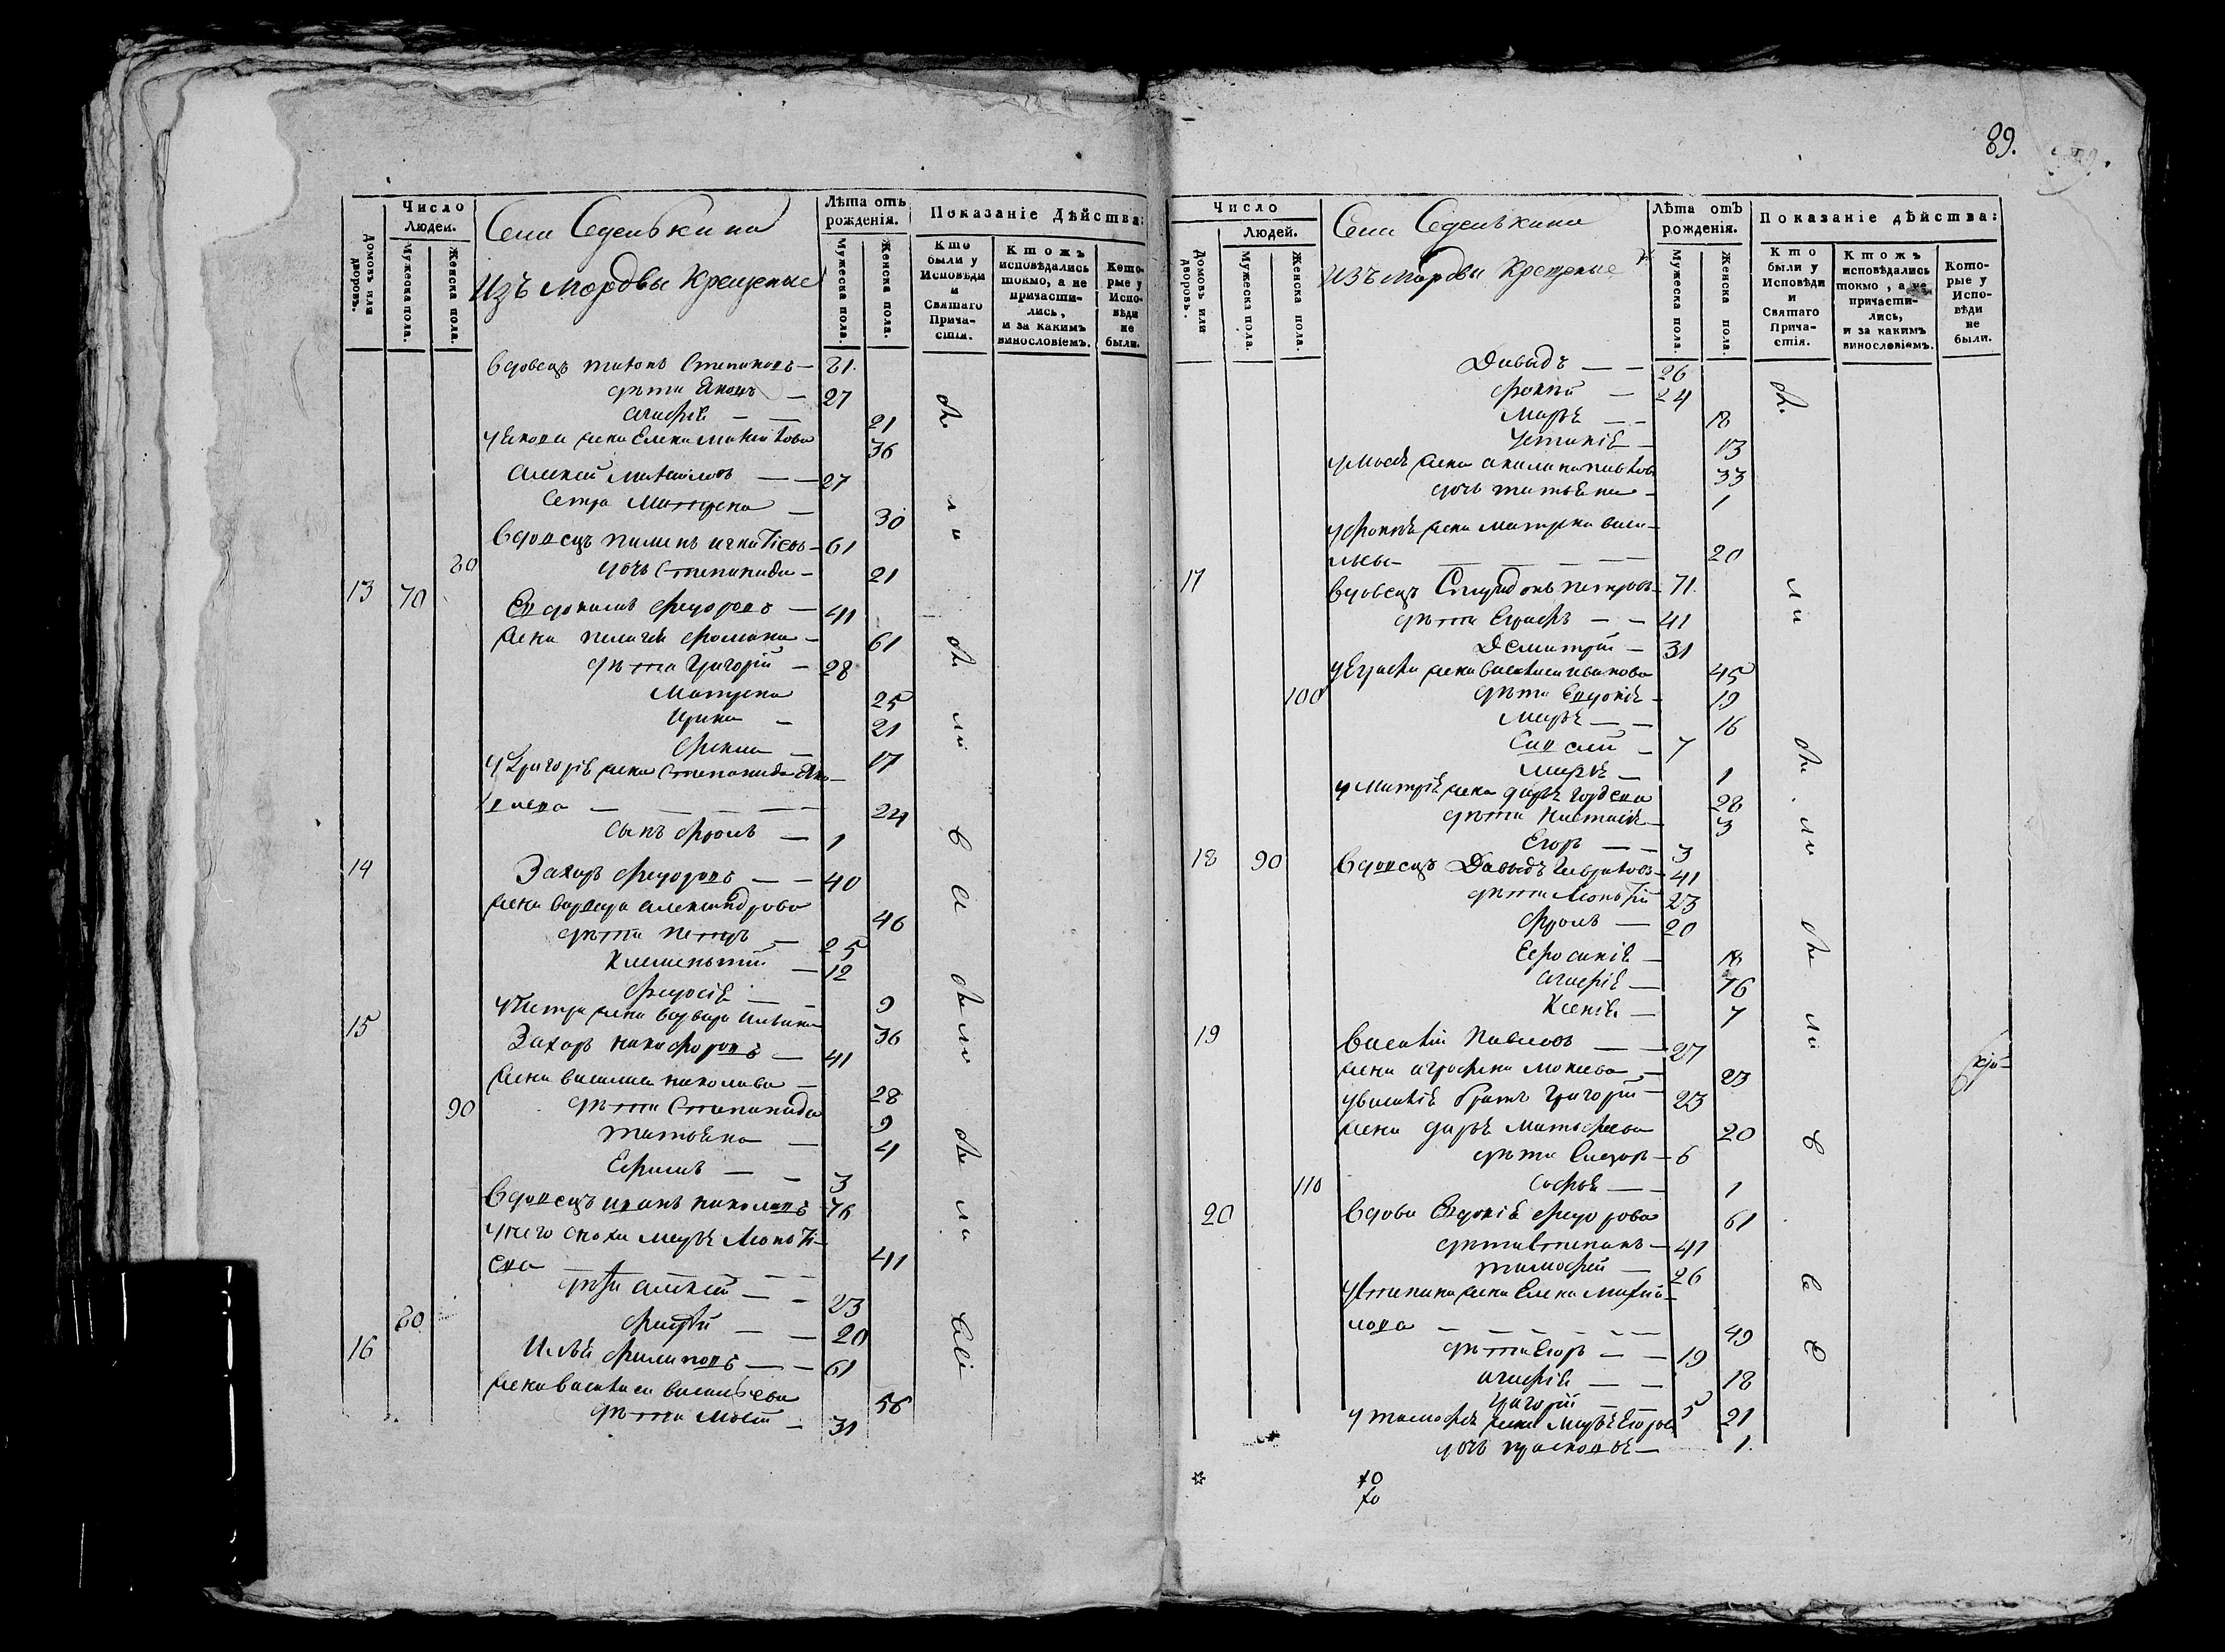 89.
Число Людей.
Домовъ или дворовъ.
Мужеска пола.
Женска пола.
Села Седелькина
Изъ Мордвы Крещеные
Лѣта отъ рожденія.
Мужеска пола.
Женска пола.
Показаніе Дѣйства:
Кто были у Исповѣди и Святаго Причастія.
Ктожъ исповѣдались токмо, а не причастились, и за какимъ винословіемъ.
Которые у Исповѣди не были.
вдовецъ Тихонъ Степановъ — 81
дѣти Яковъ — 27
Агафія — 21
у Якова жена Елена Михайлова 36
Алексей Михайловъ — 27
Сетра Матрена — 30
вдовецъ Пименъ Игнатіевъ — 61
80 дочь Степанида — 21
13 70 Евдокимъ Федоровъ — 41
жена Пелагея Фомина — 61
дѣти Григорій — 28
Матрена 25
Ирина — 21
Фекла — 17
у Григорія жена Степанида Яко-
влева — 24
сынъ Фролъ — 1
14 Захаръ Федоровъ — 40
жена Варвара Александрова 46
дѣти Петръ — 25
Клементій — 12
Федосія — 9
у Петра жена Варвара Ильина 36
15 Захаръ Никифоровъ — 41
жена Василиса Николаева — 28
90 дѣти Степанида 9
Татьяна — 4
Ефимъ — 3
вдовецъ Иванъ Николаевъ 76
у него сноха Марья Леонтіе-
ва — 41
дѣти Алексей — 23
80 Фадей — 20
16 Илья Филиповъ — 61
жена Васалиса Васильева 56
дѣти Мосей — 31
были
были
ва
были
были
ві
Число Людей.
Домовъ или дворовъ.
Мужеска пола.
Женска пола.
Села Седелькина
изъ Мордвы Крещеные
Лѣта отъ рожденія.
Мужеска пола.
Женска пола.
Показаніе дѣйства:
Кто были у Исповѣди и Святаго Причастія.
Ктожъ исповѣдались токмо, а не причастились, и за какимъ винословіемъ.
Которые у Исповѣди не были.
Давыдъ — 26
Фокей — 24
Марья — 18
Устинія — 13
у Мосея жена Акилина Павлова 33
дочь Татьяна — 1
у Фокея жена Матрена Васи-
льева — 20
17 вдовецъ Спиридонъ Петровъ — 71
дѣти Ерафъ — 41
Демитрій — 31
у жена Васалиса Иванова 45
100 дѣти Евдокія — 19
Марья — 16
Савелей — 7
Марья — 1
у Митрія жена Дарья Гордеева 28
дѣти Настасія — 3
Егоръ — 3
18 90 вдовецъ Давыдъ Гавриловъ — 41
дѣти Леонтій 23
Фролъ — 20
Ефросинія — 18
Агафія — 16
Ксенія — 7
19 Василій Павловъ — 27
жена Аграфена Мокеева — 23
у Василія братъ Григорій — 23
жена Дарья Матофеева 20
дѣти Сидоръ — 6
110 Софья — 1
20 вдова Евдокія Федорова 61
дѣти Степанъ — 41
Тимофей — 26
у Степана жена Елена Михай-
лова — 49
дѣти Егоръ — 19
Агафія — 18
Григорій — 5
у Тимофея жена Марья Егорова 21
дочь Прасковья — 1